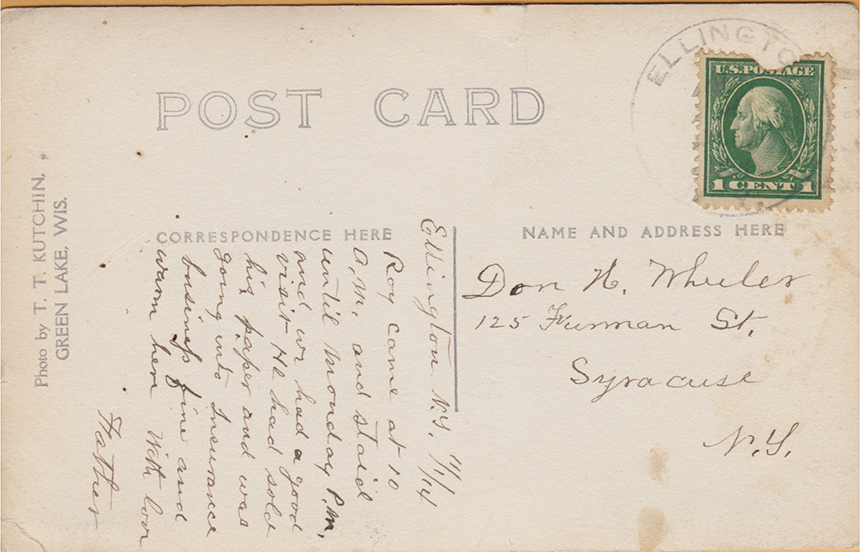 POST CARD
ELLINGTO
U.S. POSTAGE
1 CENT 1
Photo by T. T. KUTCHIN,
GREEN LAKE, WIS.
CORRESPONDENCE HERE
NAME AND ADDRESS HERE
Ellington N.Y. 11/14
Roy came at 10
A.M. and staid
until Monday P.M.
and we had a good
visit He had sold
his paper and was
going into Insurance
business fine and
warm here With love
Father
Don H. Wheeler
125 Furman St.
Syracuse
N.Y.